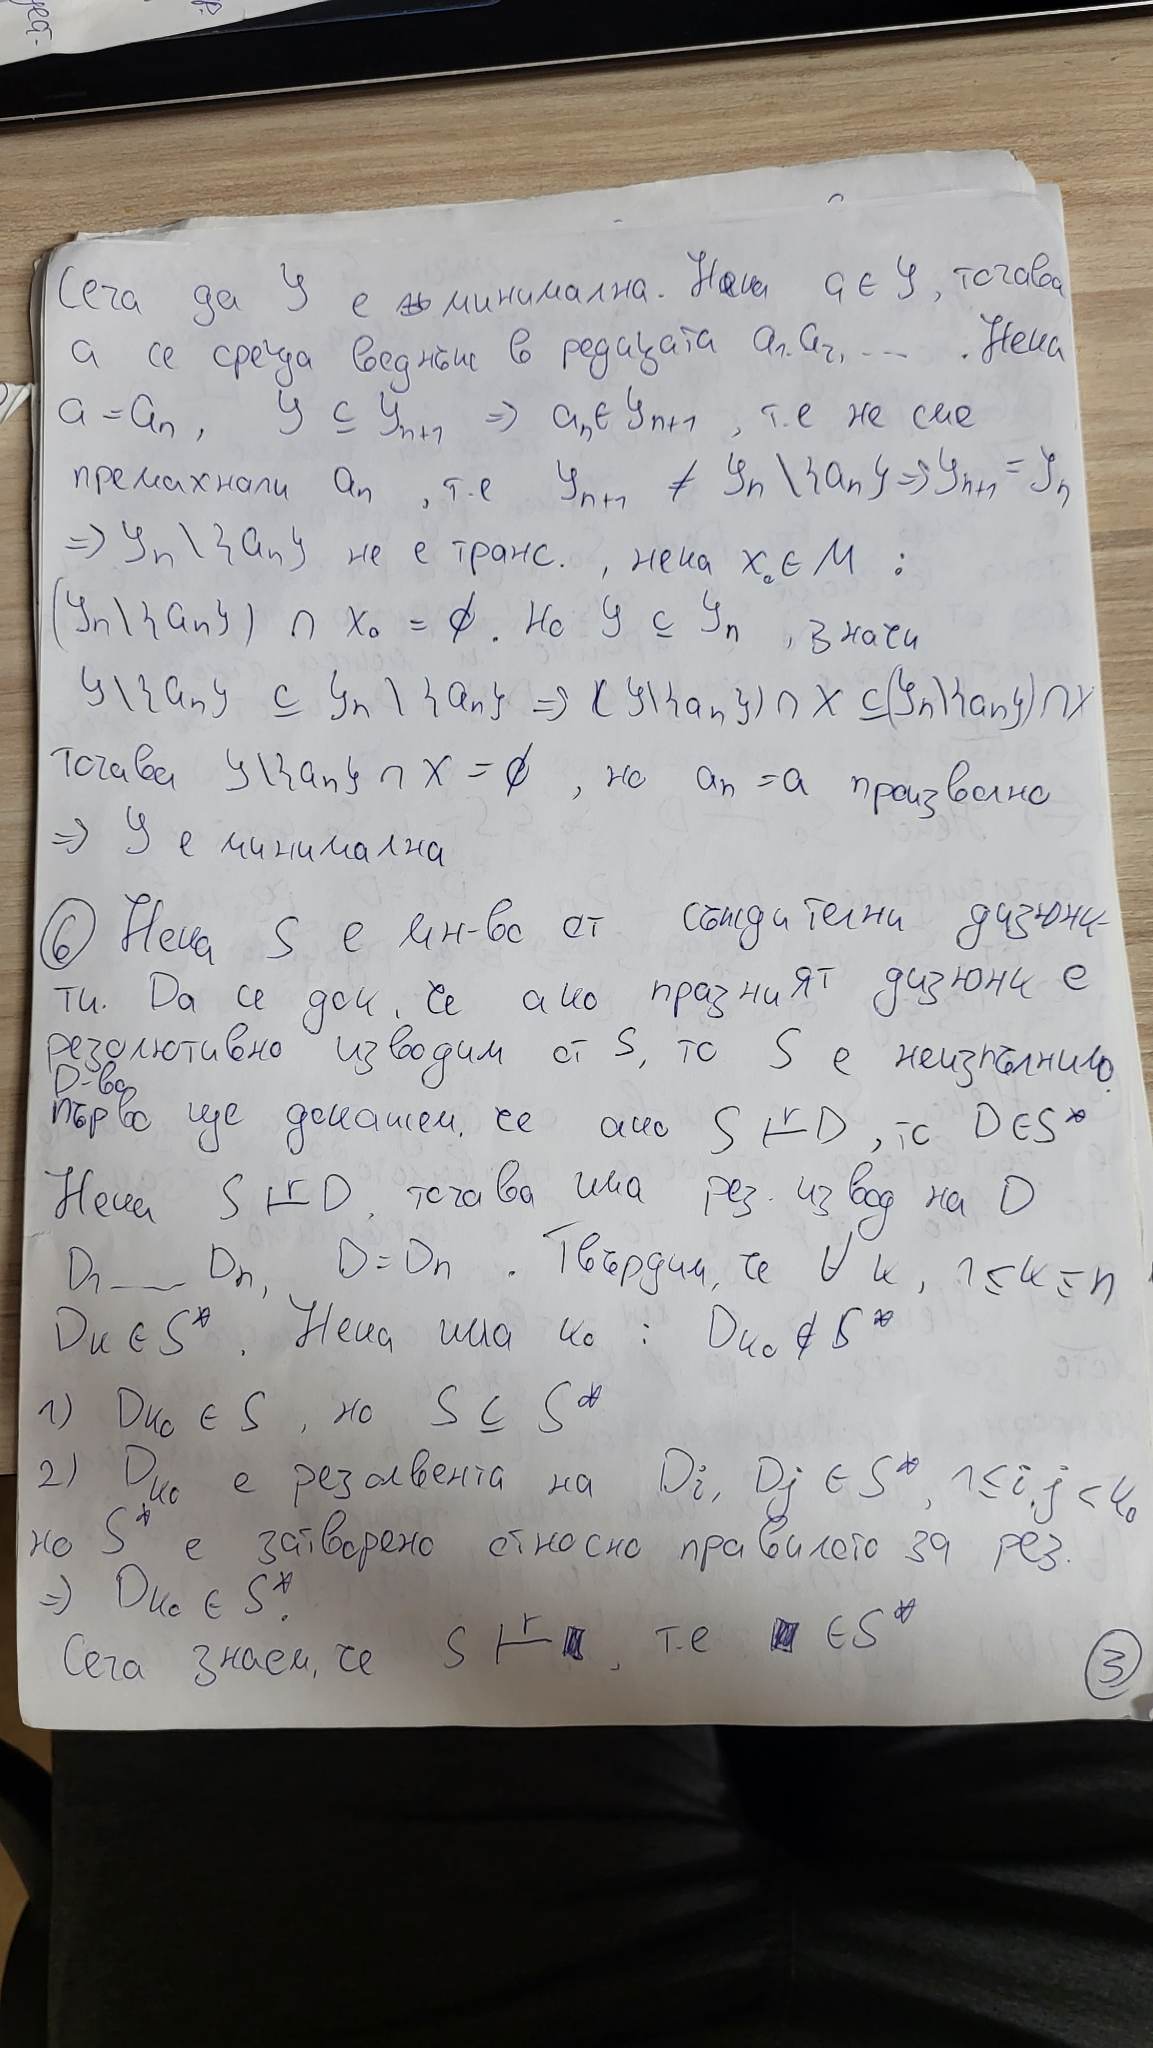 Сега да Y е минимална. Нека a ∈ Y, тогава
a се среща веднъж в редицата a₁, a₂, ... . Нека
a = aₙ, Y ⊆ Yₙ₊₁ ⇒ aₙ ∈ Yₙ₊₁, т.е не сме
премахнали aₙ, т.е Yₙ₊₁ ≠ Yₙ \ {aₙ} ⇒ Yₙ₊₁ = Yₙ
⇒ Yₙ \ {aₙ} не е транс., нека x₀ ∈ M :
(Yₙ \ {aₙ}) ∩ x₀ = ∅. Но Y ⊆ Yₙ, значи
Y \ {aₙ} ⊆ Yₙ \ {aₙ} ⇒ (Y \ {aₙ}) ∩ X ⊆ (Yₙ \ {aₙ}) ∩ X
Тогава Y \ {aₙ} ∩ X = ∅, но aₙ = a произволно
⇒ Y е минимална
⑥ Нека S е мн-во от съждителни дизюнк-
ти. Да се док. че ако празният дизюнкт е
резолютивно изводим от S, то S е неизпълнимо.
D-во
Първо ще докажем, че ако S ⊢ʳ D, то D ∈ S*
Нека S ⊢ʳ D, тогава има рез. извод на D
D₁ __ Dₙ, D = Dₙ. Твърдим, че ∀ k, 1 ≤ k ≤ n
Dₖ ∈ S*. Нека има k₀ : Dₖ₀ ∉ S*
1) Dₖ₀ ∈ S, но S ⊆ S*
2) Dₖ₀ е резолвента на Di, Dj ∈ S*, 1 ≤ i, j < k₀
но S* е затворено относно правилото за рез.
⇒ Dₖ₀ ∈ S*.
Сега знаем, че S ⊢ʳ ■, т.е ■ ∈ S*
③